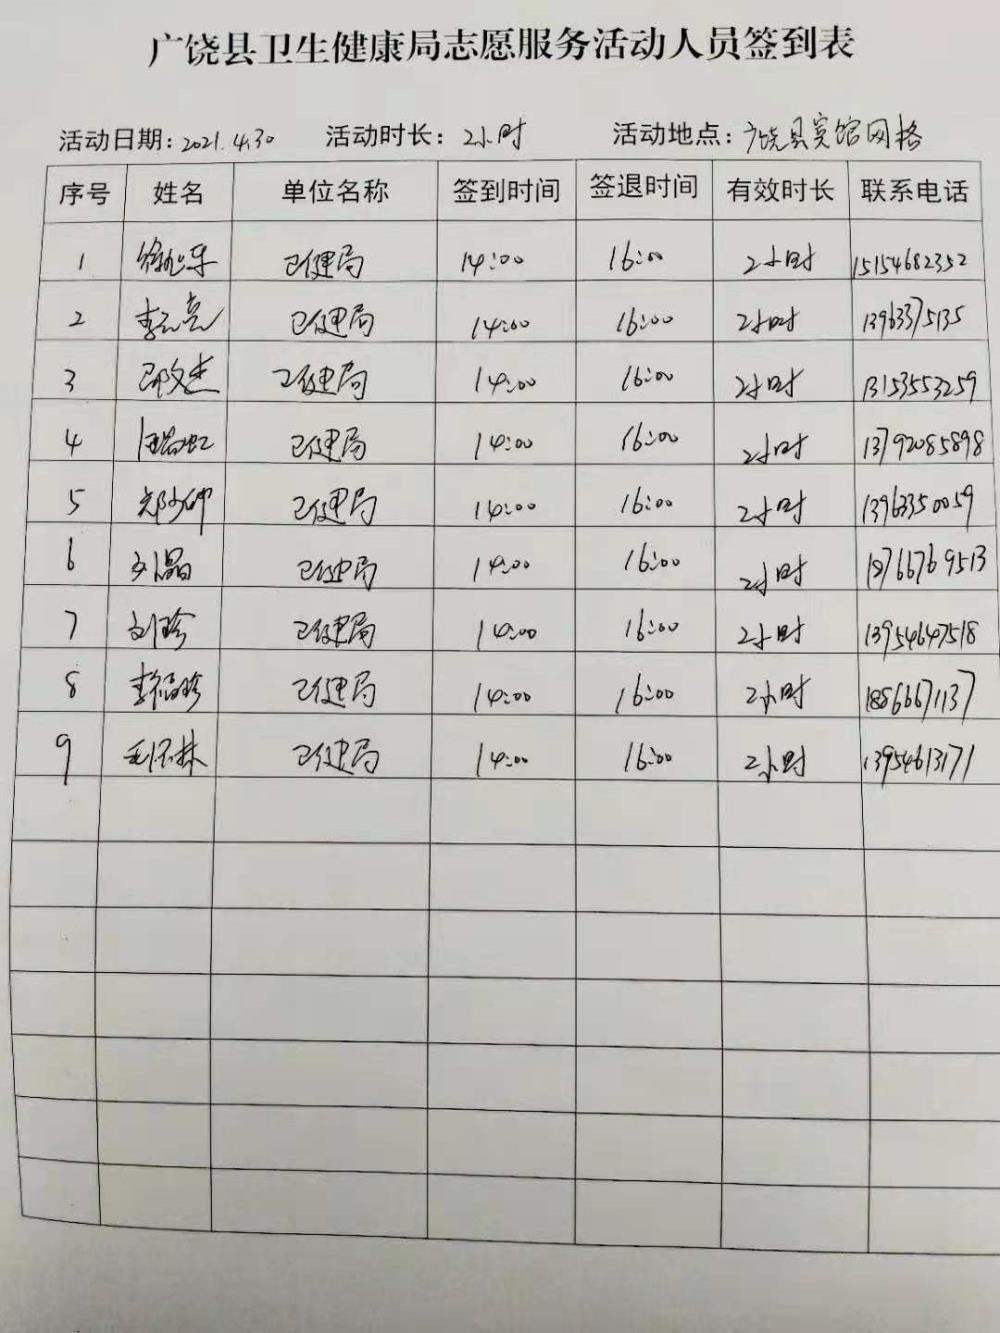 广饶县卫生健康局志愿服务活动人员签到表
活动日期：2021.4.30 活动时长：2小时 活动地点：广饶县宾馆网格
序号 姓名 单位名称 签到时间 签退时间 有效时长 联系电话
1 卫健局 14:00 16:00 2小时 15154682352
2 李元亮 卫健局 14:00 16:00 2小时 13963375135
3 邵文杰 卫健局 14:00 16:00 2小时 13153553259
4 卫健局 14:00 16:00 2小时 13792085898
5 卫健局 14:00 16:00 2小时 13963350059
6 刘晶 卫健局 14:00 16:00 2小时 18766769513
7 刘珍 卫健局 14:00 16:00 2小时 13954647518
8 李福珍 卫健局 14:00 16:00 2小时 18866671137
9 毛怀林 卫健局 14:00 16:00 2小时 13954613171